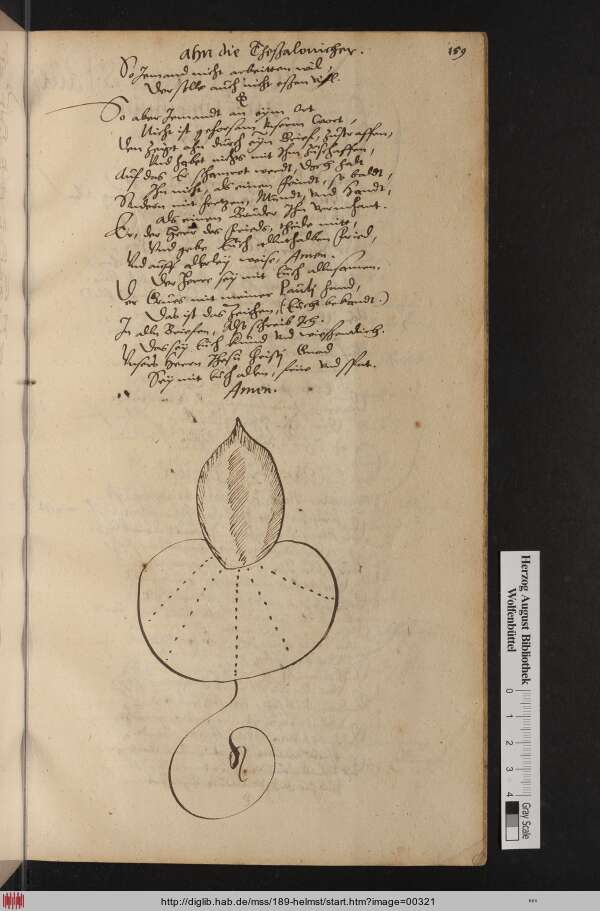 ahn die Theßalonicher.
159
So Jemand nicht arbeitten wil,
Der solle auch nicht eßen viel.
So aber Jemandt an eym Ort
Nicht ist gehorsam Unserm Wort,
Den zeigt ahn durch eyn Brief, zustraffen,
Und habet nichts mit Ihm zuschaffen,
Auff das Er schamrot werdt, doch halt
Ihn nicht, als einen Feindt, so baldt,
Sondern mit Hertzen, Mundt, und Handt,
Als einen Bruder Ihn vermahnt.
Er, der Herr des Frieds, theile mitt,
Und gebe Euch allenthalben Fried,
Und auff allerley weise, Amen.
Der Herre sey mit Euch allensamen.
Der Grues mit meiner Pauli Hand,
Das ist das Zeichen, (Euch bekandt.)
In alln Briefen, Also schreib Ich.
Das sey Euch kund und
Unsers Herren Jhesu Christi Gnad
Sey mit Euch allen, und spat.
Amen.
Herzog August Bibliothek
Wolfenbüttel
0 1 2 3 4
Gray Scale
http://diglib.hab.de/mss/189-helmst/start.htm?image=00321